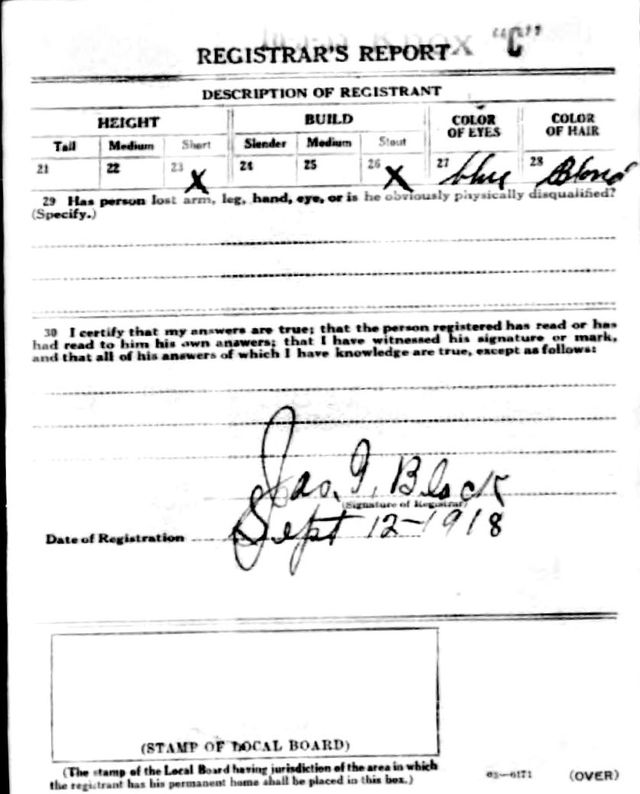 "C"
REGISTRAR'S REPORT
DESCRIPTION OF REGISTRANT
HEIGHT BUILD COLOR OF EYES COLOR OF HAIR
Tall Medium Short Slender Medium Stout
21 22 23 X 24 25 26 X 27 blue 28 Blond
29 Has person lost arm, leg, hand, eye, or is he obviously physically disqualified?
(Specify.)
30 I certify that my answers are true; that the person registered has read or has
had read to him his own answers; that I have witnessed his signature or mark,
and that all of his answers of which I have knowledge are true, except as follows:
Jas. I. Black
(Signature of Registrar)
Date of Registration Sept 12-1918
(STAMP OF LOCAL BOARD)
(The stamp of the Local Board having jurisdiction of the area in which
the registrant has his permanent home shall be placed in this box.)
03-6171 (OVER)